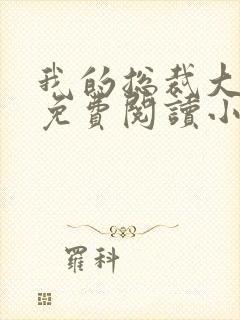 我的总裁大
免費閱讀小
羅科